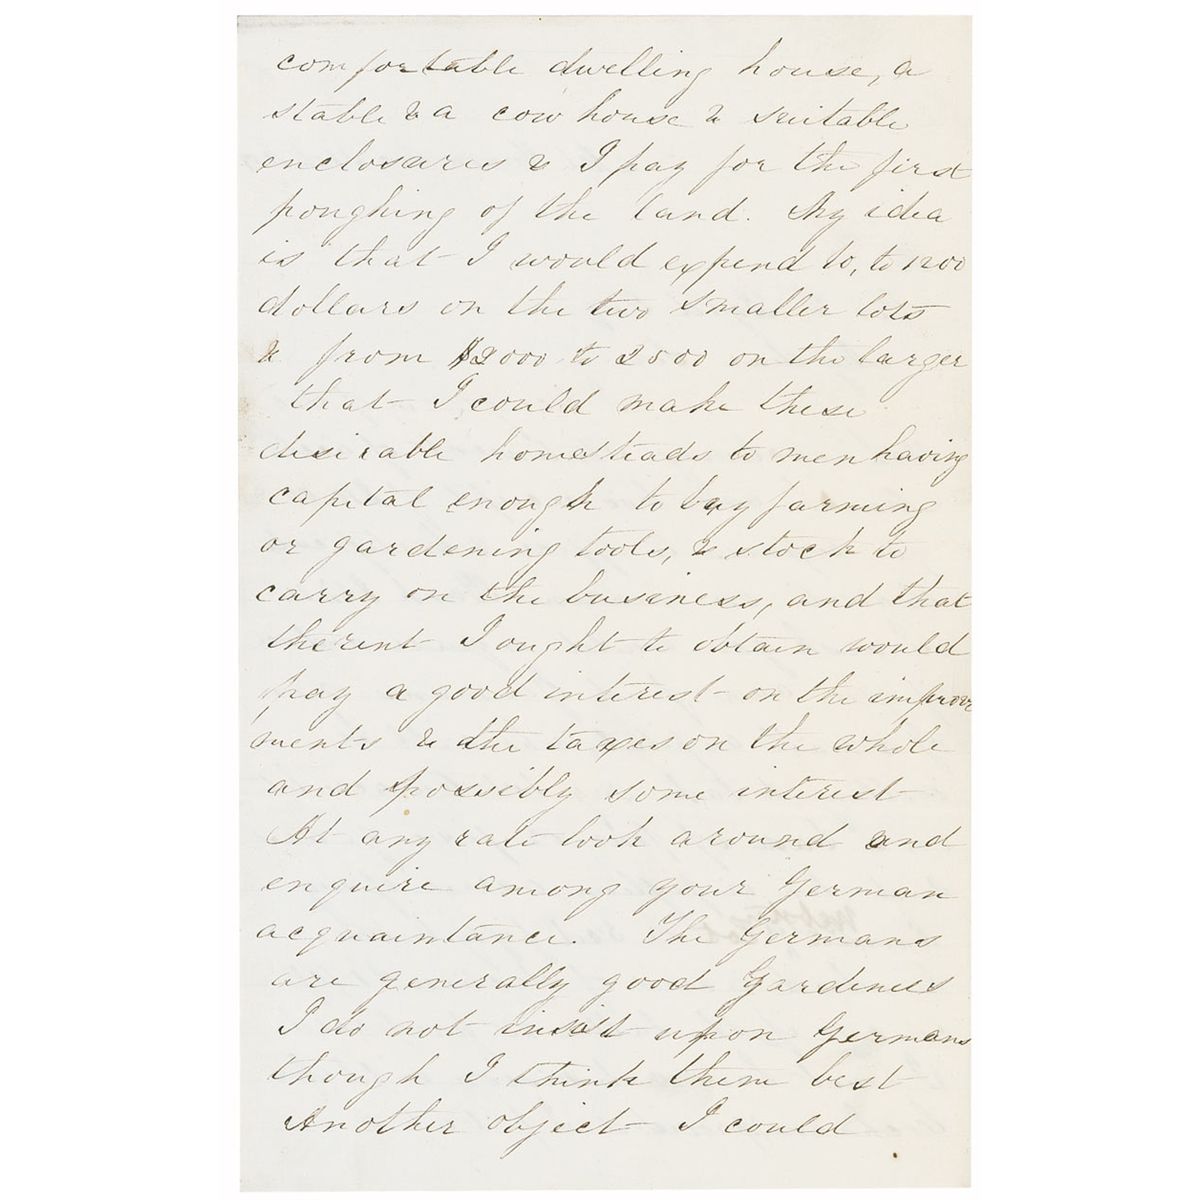 comfortable dwelling house, a
stable & a cow house & suitable
enclosures & I pay for the first
poughing of the land. My idea
is that I would expend to, to 1200
dollars on the two smaller lots
& from $2000 to 2500 on the larger
that I could make these
desirable homesteads to men having
capital enough to buy farming
or gardening tools, & stock to
carry on the business, and that
the rent I ought to obtain would
pay a good interest on the improve
ments & the taxes on the whole
and possibly some interest
At any rate look around and
enquire among your German
acquaintance. The Germans
are generally good Gardeners
I do not insist upon Germans
though I think them best
Another object I could